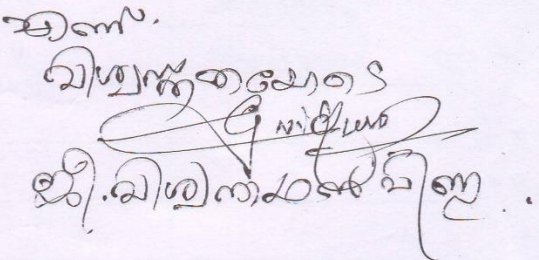 എന്ന്.
വിശ്വസ്തതയോടെ
ജി. വിശ്വനാഥൻ പിള്ള.